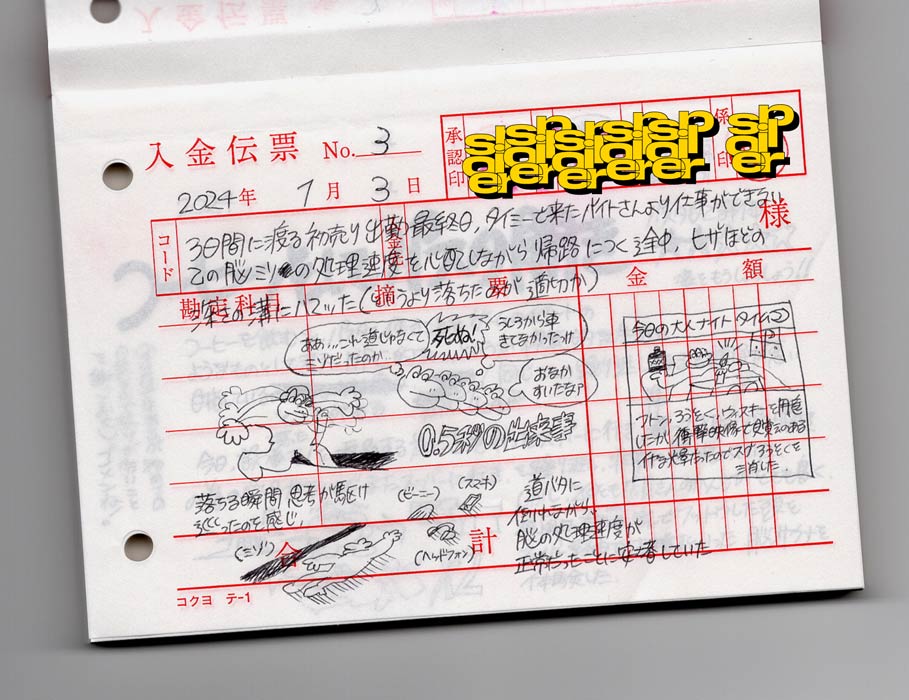 入金伝票 No. 3
承認印
係印
slsplslslsp slp
aiaiaiaiai ai
erererer er
2024年 1月 3日
コード
様
3日間に渡る初売り出勤最終日、タイミーで来たバイトさんより仕事ができない
己の脳ミソの処理速度を心配しながら帰路につく途中、ヒザほどの
深さの溝にハマッた(というより落ちたの方が適切か)
勘定科目
摘要
金額
ああ…これ道じゃなくて
ミゾだったのか…
死ぬ!
うしろから車
きてなかったっけ
おなか
すいたな?
0.5秒の出来事
今日の大人ナイトタイム②
フトン、ろうそく、ウィスキーを用意
したが、衝撃映像で見
だったのでスグろうそくを
消した。
落ちる瞬間思考が駆け
巡ったのを感じ、
(ビーニー)
(スマホ)
(ヘッドフォン)
(ミゾ)
道バタに
倒れながら、
脳の処理速度が
正常だったことに安堵していた
合計
コクヨ テ-1